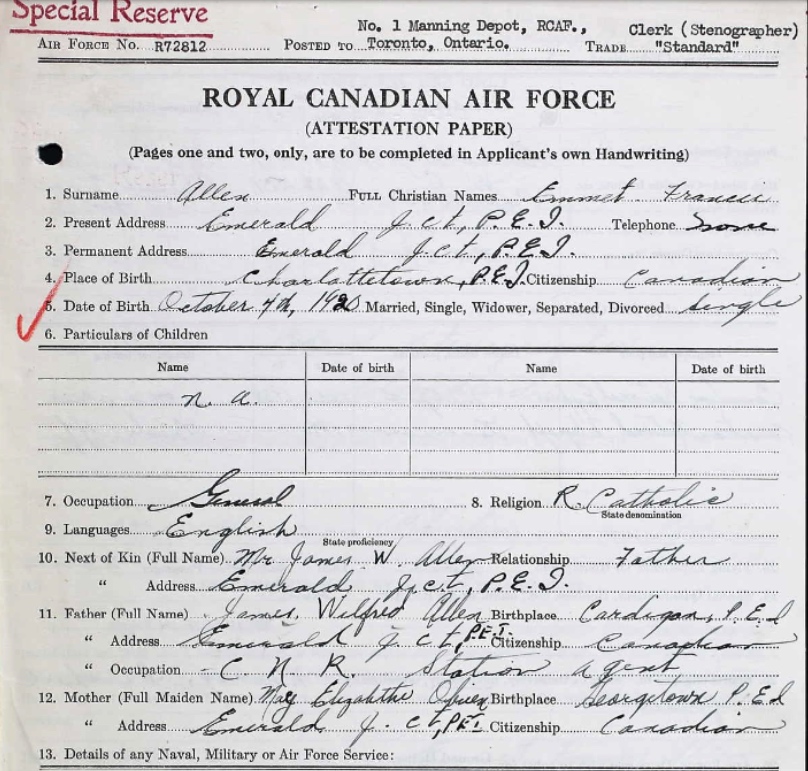 Special Reserve
No. 1 Manning Depot, RCAF., Clerk (Stenographer)
AIR FORCE NO. R72812 POSTED TO Toronto, Ontario. TRADE "Standard"
ROYAL CANADIAN AIR FORCE
(ATTESTATION PAPER)
(Pages one and two, only, are to be completed in Applicant's own Handwriting)
1. Surname Allen FULL Christian Names Emmet Francis
2. Present Address Emerald Jct, P.E.I. Telephone none
3. Permanent Address Emerald Jct, P.E.I.
4. Place of Birth Charlattetown, P.E.I. Citizenship Canadian
5. Date of Birth October 4th, 1920 Married, Single, Widower, Separated, Divorced single
6. Particulars of Children
Name Date of birth Name Date of birth
n. a.
7. Occupation General 8. Religion R. Catholic
State denomination
9. Languages English
State proficiency
10. Next of Kin (Full Name) Mr James W. Allen Relationship Father
" Address Emerald Jct, P.E.I.
11. Father (Full Name) James Wilfred Allen Birthplace Cardigan, P.E.I
" Address Emerald J. ct, P.E.I. Citizenship Canadian
" Occupation C N R. Station agent
12. Mother (Full Maiden Name) May Obrien Birthplace Georgetown P.E.I
" Address Emerald J. ct, P.E.I Citizenship Canadian
13. Details of any Naval, Military or Air Force Service: